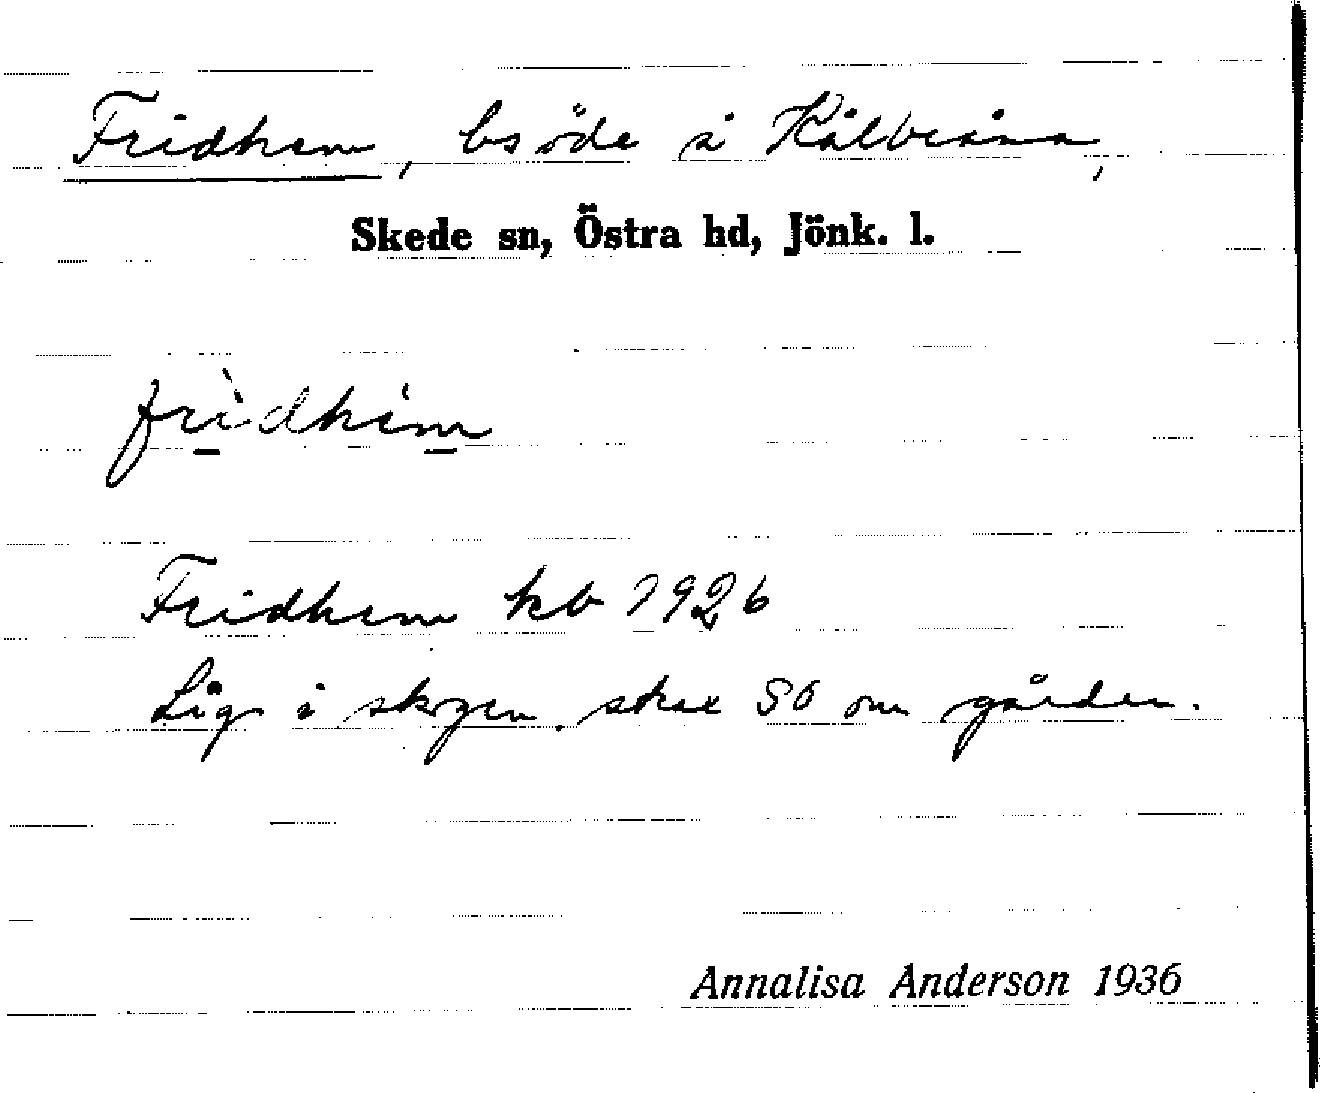 Fridhem, bsöde å Kålbråna,
Skede sn, Östra hd, Jönk. l.
frìdhím
Fridhem kb 1926
Låg i skogen, strax SO om gården.
Annalisa Anderson 1936